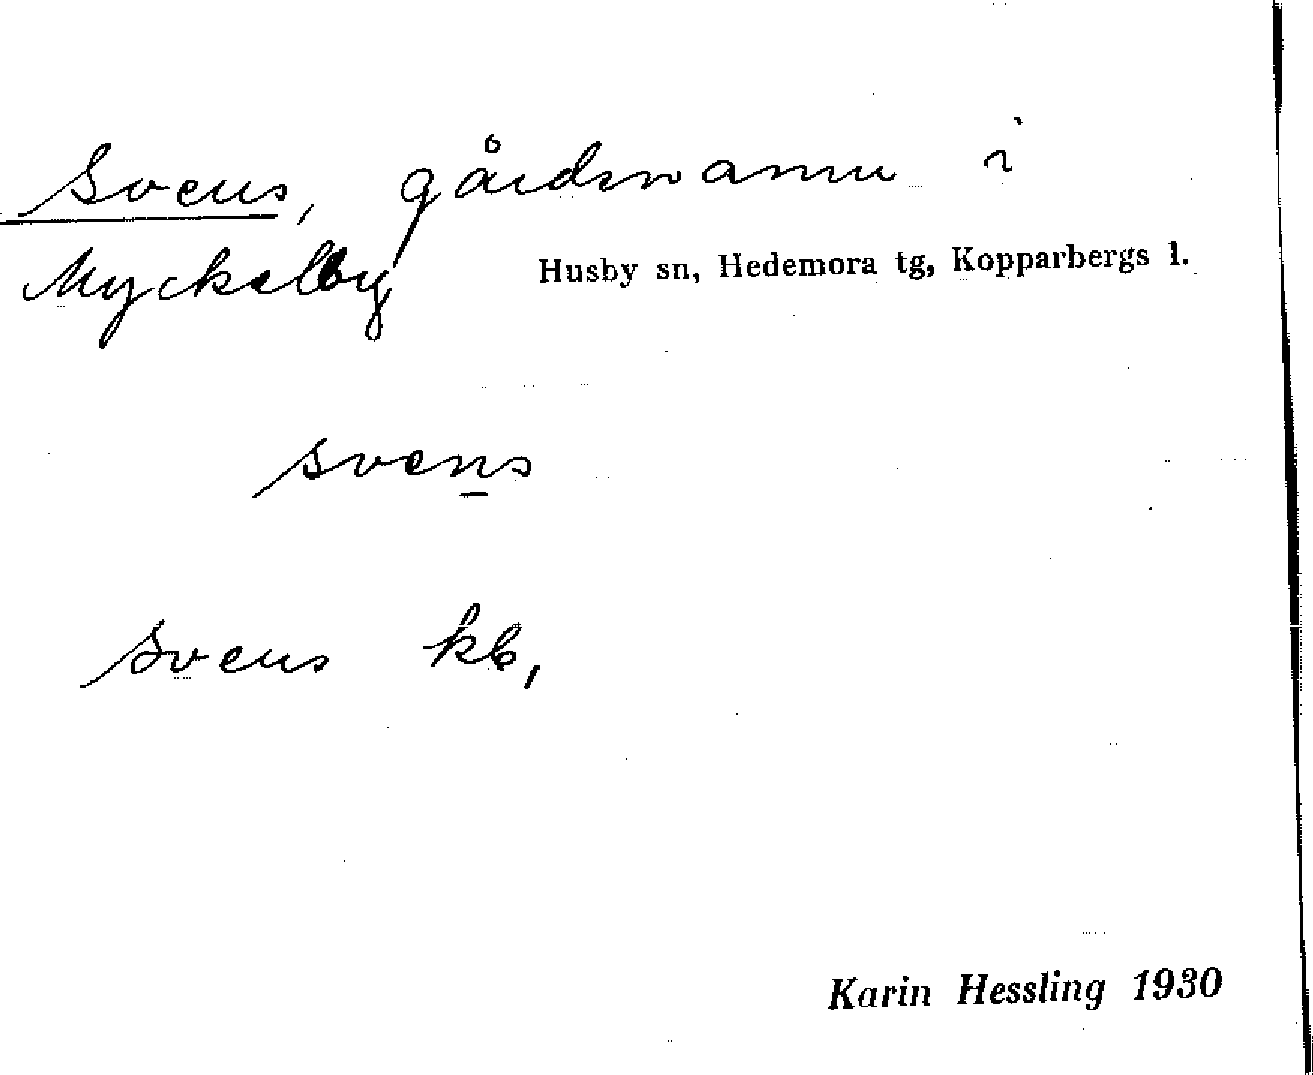 Svens, gårdsnamn i
Myckelby Husby sn, Hedemora tg, Kopparbergs l.
svens
Svens kb,
Karin Hessling 1930